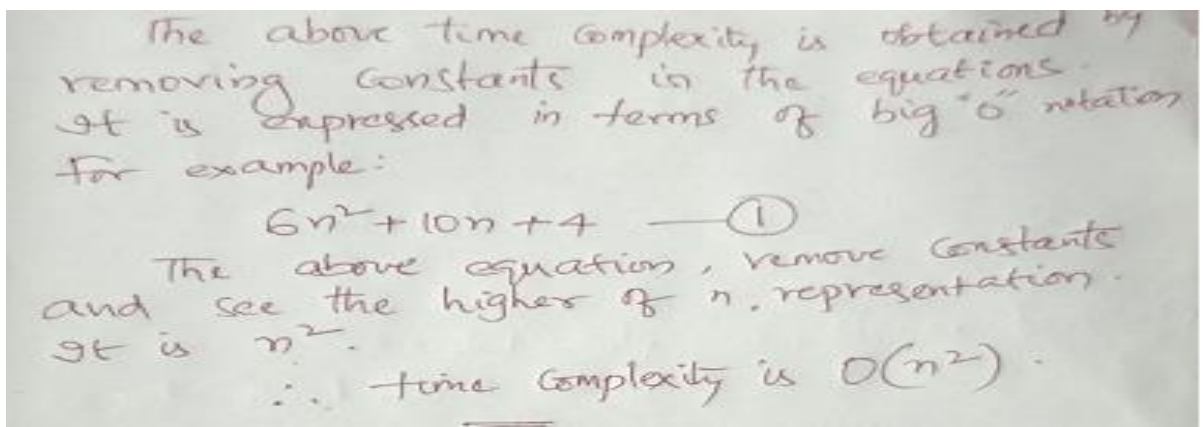 The above time complexity is obtained by
removing constants in the equations.
It is expressed in terms of big "O" notation
For example:
6n² + 10n + 4 —— ①
The above equation, remove constants
and see the higher of n. representation.
It is n².
∴ time complexity is O(n²).